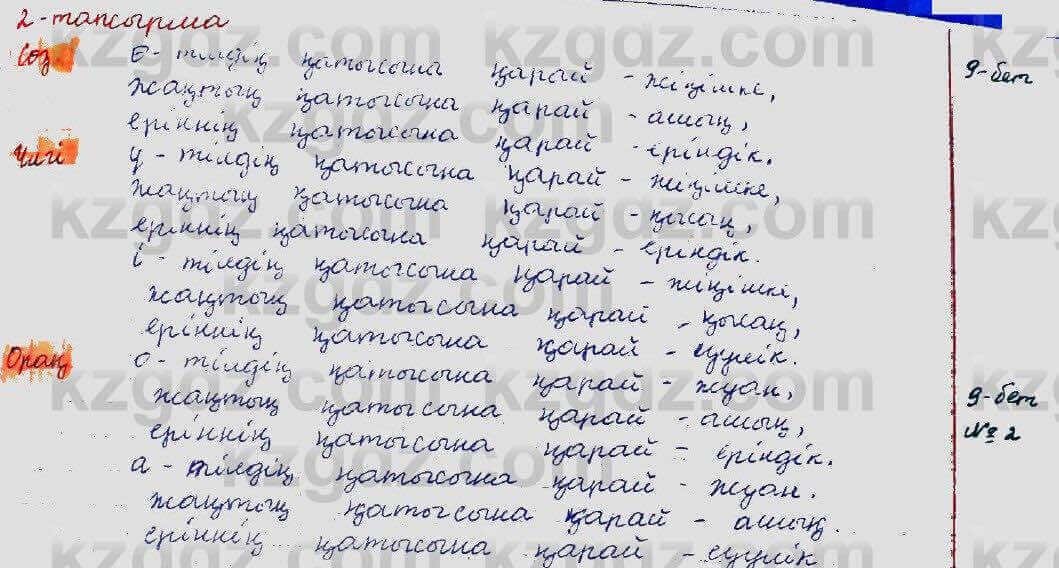 2-тапсырма
Сөз Ө - тілдің қатысына қарай - жіңішке, 9-бет
жақтың қатысына қарай - ашық,
еріннің қатысына қарай - еріндік.
Үлгі ү - тілдің қатысына қарай - жіңішке,
жақтың қатысына қарай - қысаң,
еріннің қатысына қарай - еріндік.
і - тілдің қатысына қарай - жіңішке,
жақтың қатысына қарай - қысаң,
еріннің қатысына қарай - езулік.
Орақ о - тілдің қатысына қарай - жуан,
жақтың қатысына қарай - ашық, 9-бет
еріннің қатысына қарай - еріндік. № 2
а - тілдің қатысына қарай - жуан.
жақтың қатысына қарай - ашық.
еріннің қатысына қарай - езулік
kzgdz.com